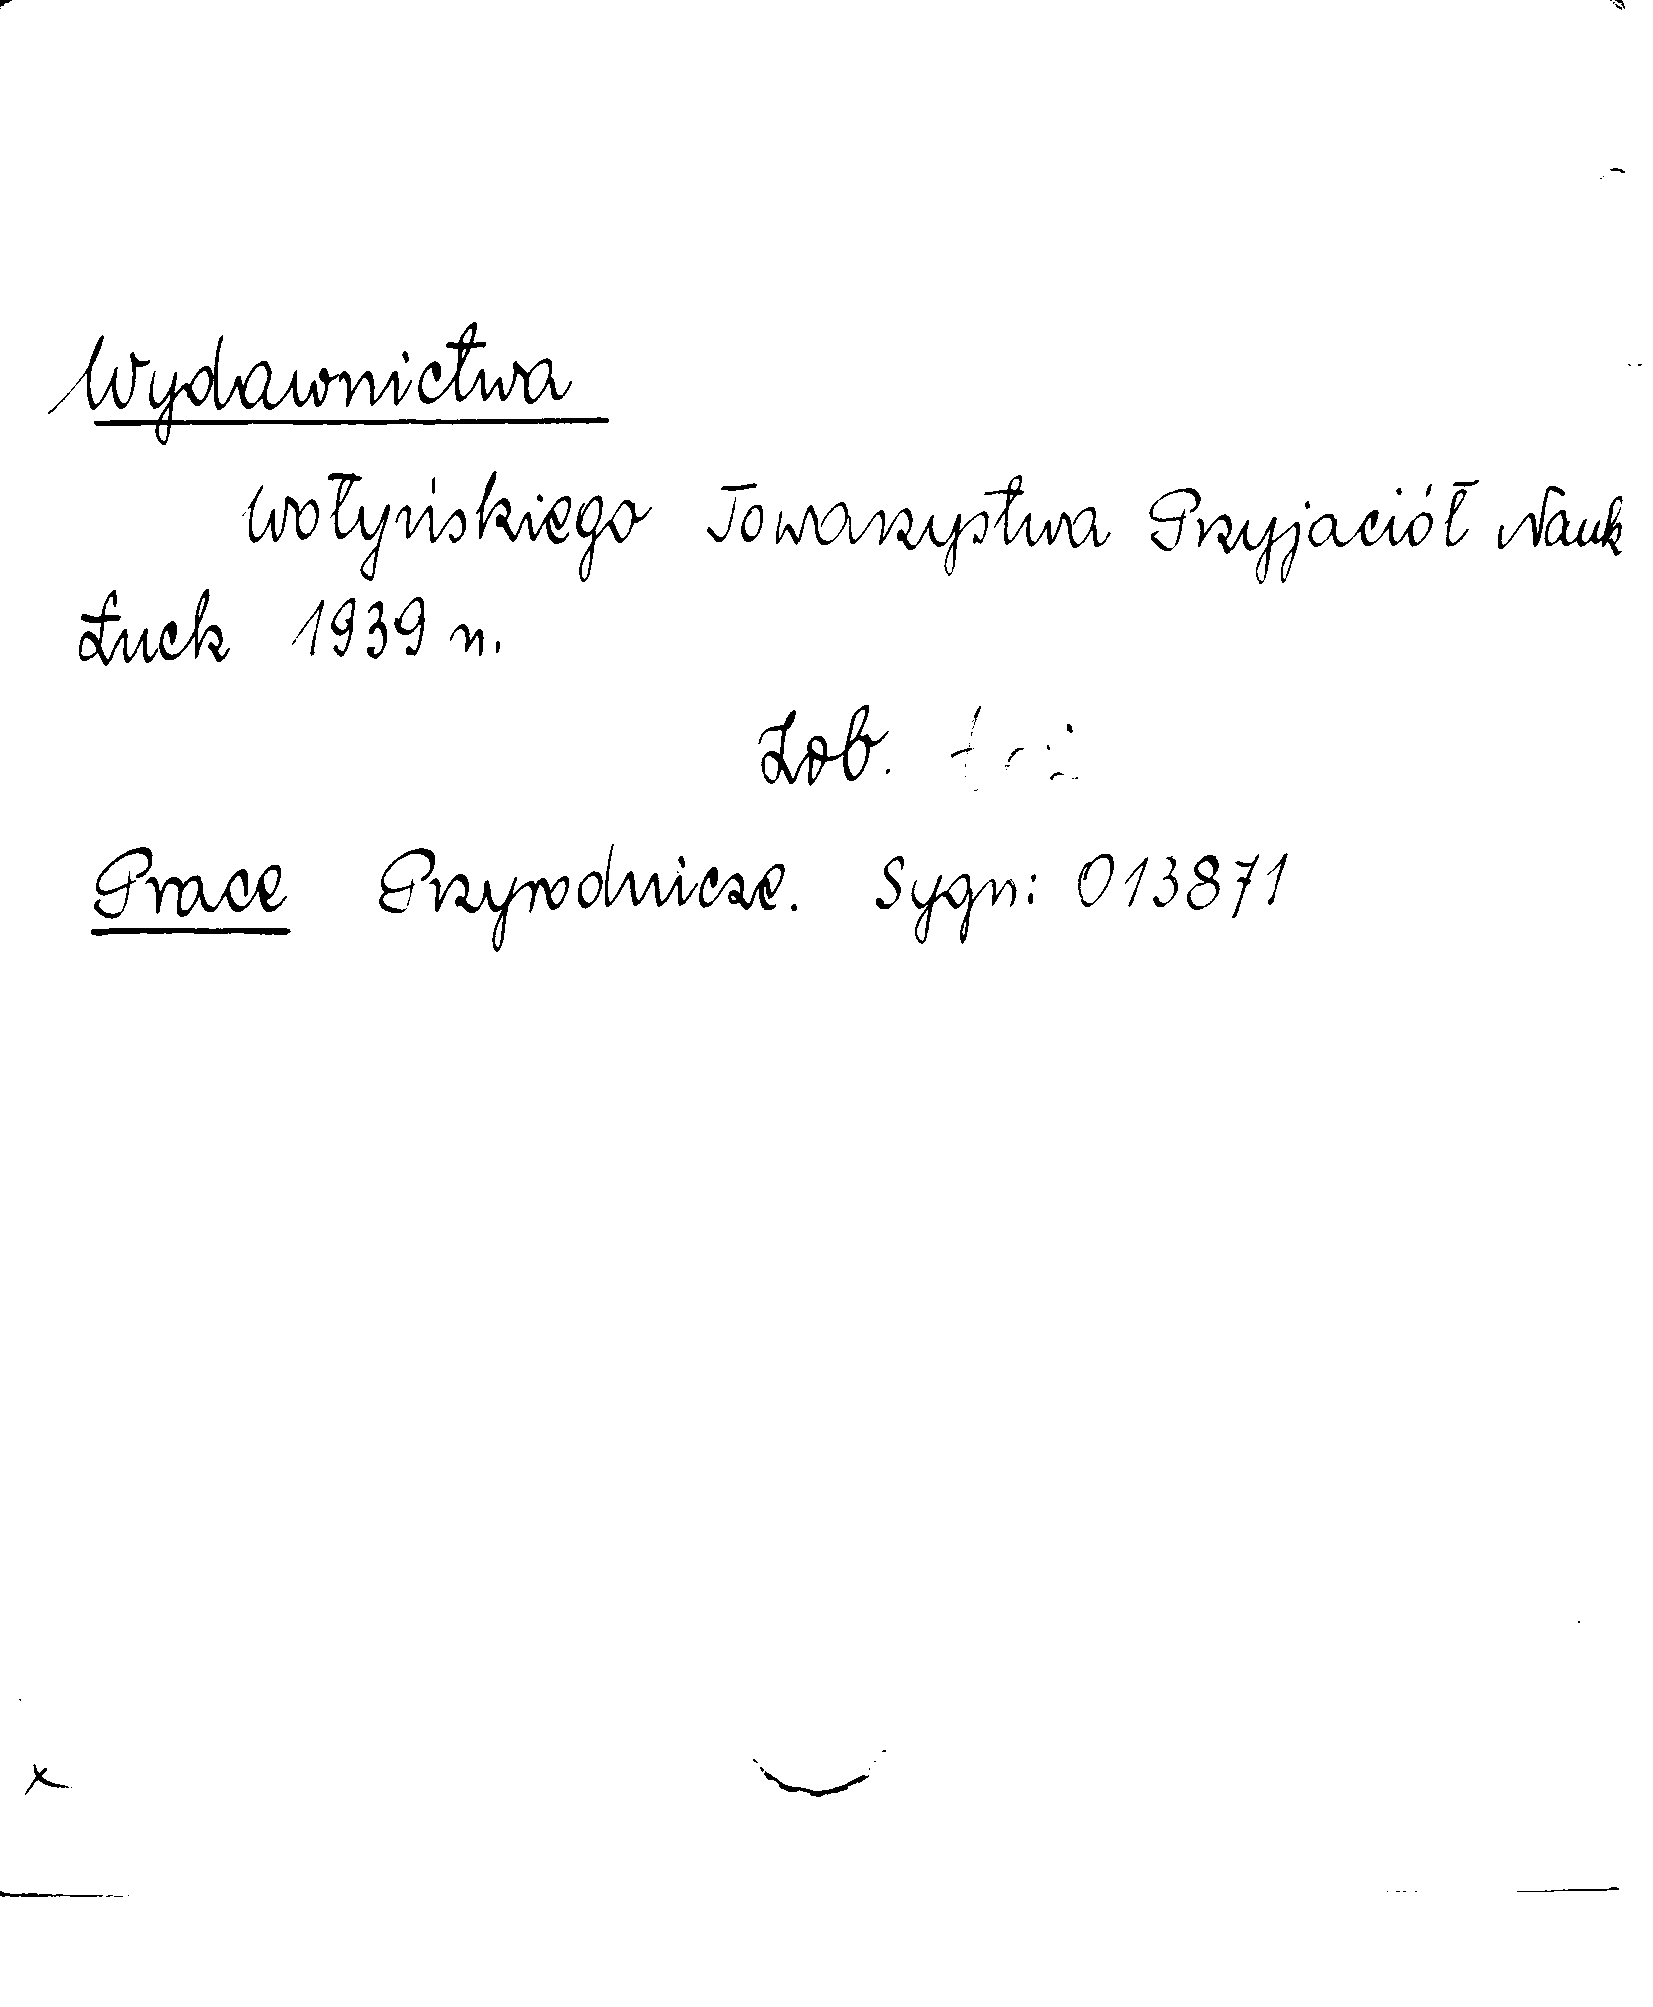 Wydawnictwa
Wołyńskiego Towarzystwa Przyjaciół Nauk
Łuck 1939 r.
Zob.
Prace Przyrodnicze. Sygn: 013871